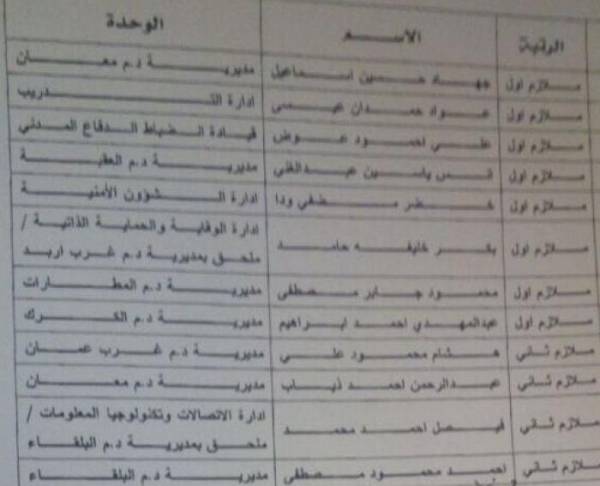 الرتبة الاسم الوحدة
ملازم اول جهاد حسين اسماعيل مديرية د.م معان
ملازم اول عواد حمدان عيسى ادارة التدريب
ملازم اول علي احمود عوض قيادة الضباط الدفاع المدني
ملازم اول انس ياسين عبدالغني مديرية د.م العقبة
ملازم اول خضر مضفي ودا ادارة الشؤون الأمنية
ملازم اول بكر خليفه حامد ادارة الوقاية والحماية الذاتية /
ملحق بمديرية د.م غرب اربد
ملازم اول محمود جابر مصطفى مديرية د.م المطارات
ملازم اول عبدالمهدي احمد ابراهيم مديرية د.م الكرك
ملازم ثاني هشام محمود علي مديرية د.م غرب عمان
ملازم ثاني عبدالرحمن احمد ذياب مديرية د.م معان
ملازم ثاني فيصل احمد محمد ادارة الاتصالات وتكنولوجيا المعلومات /
ملحق بمديرية د.م البلقاء
ملازم ثاني احمد محمود مصطفى مديرية د.م البلقاء